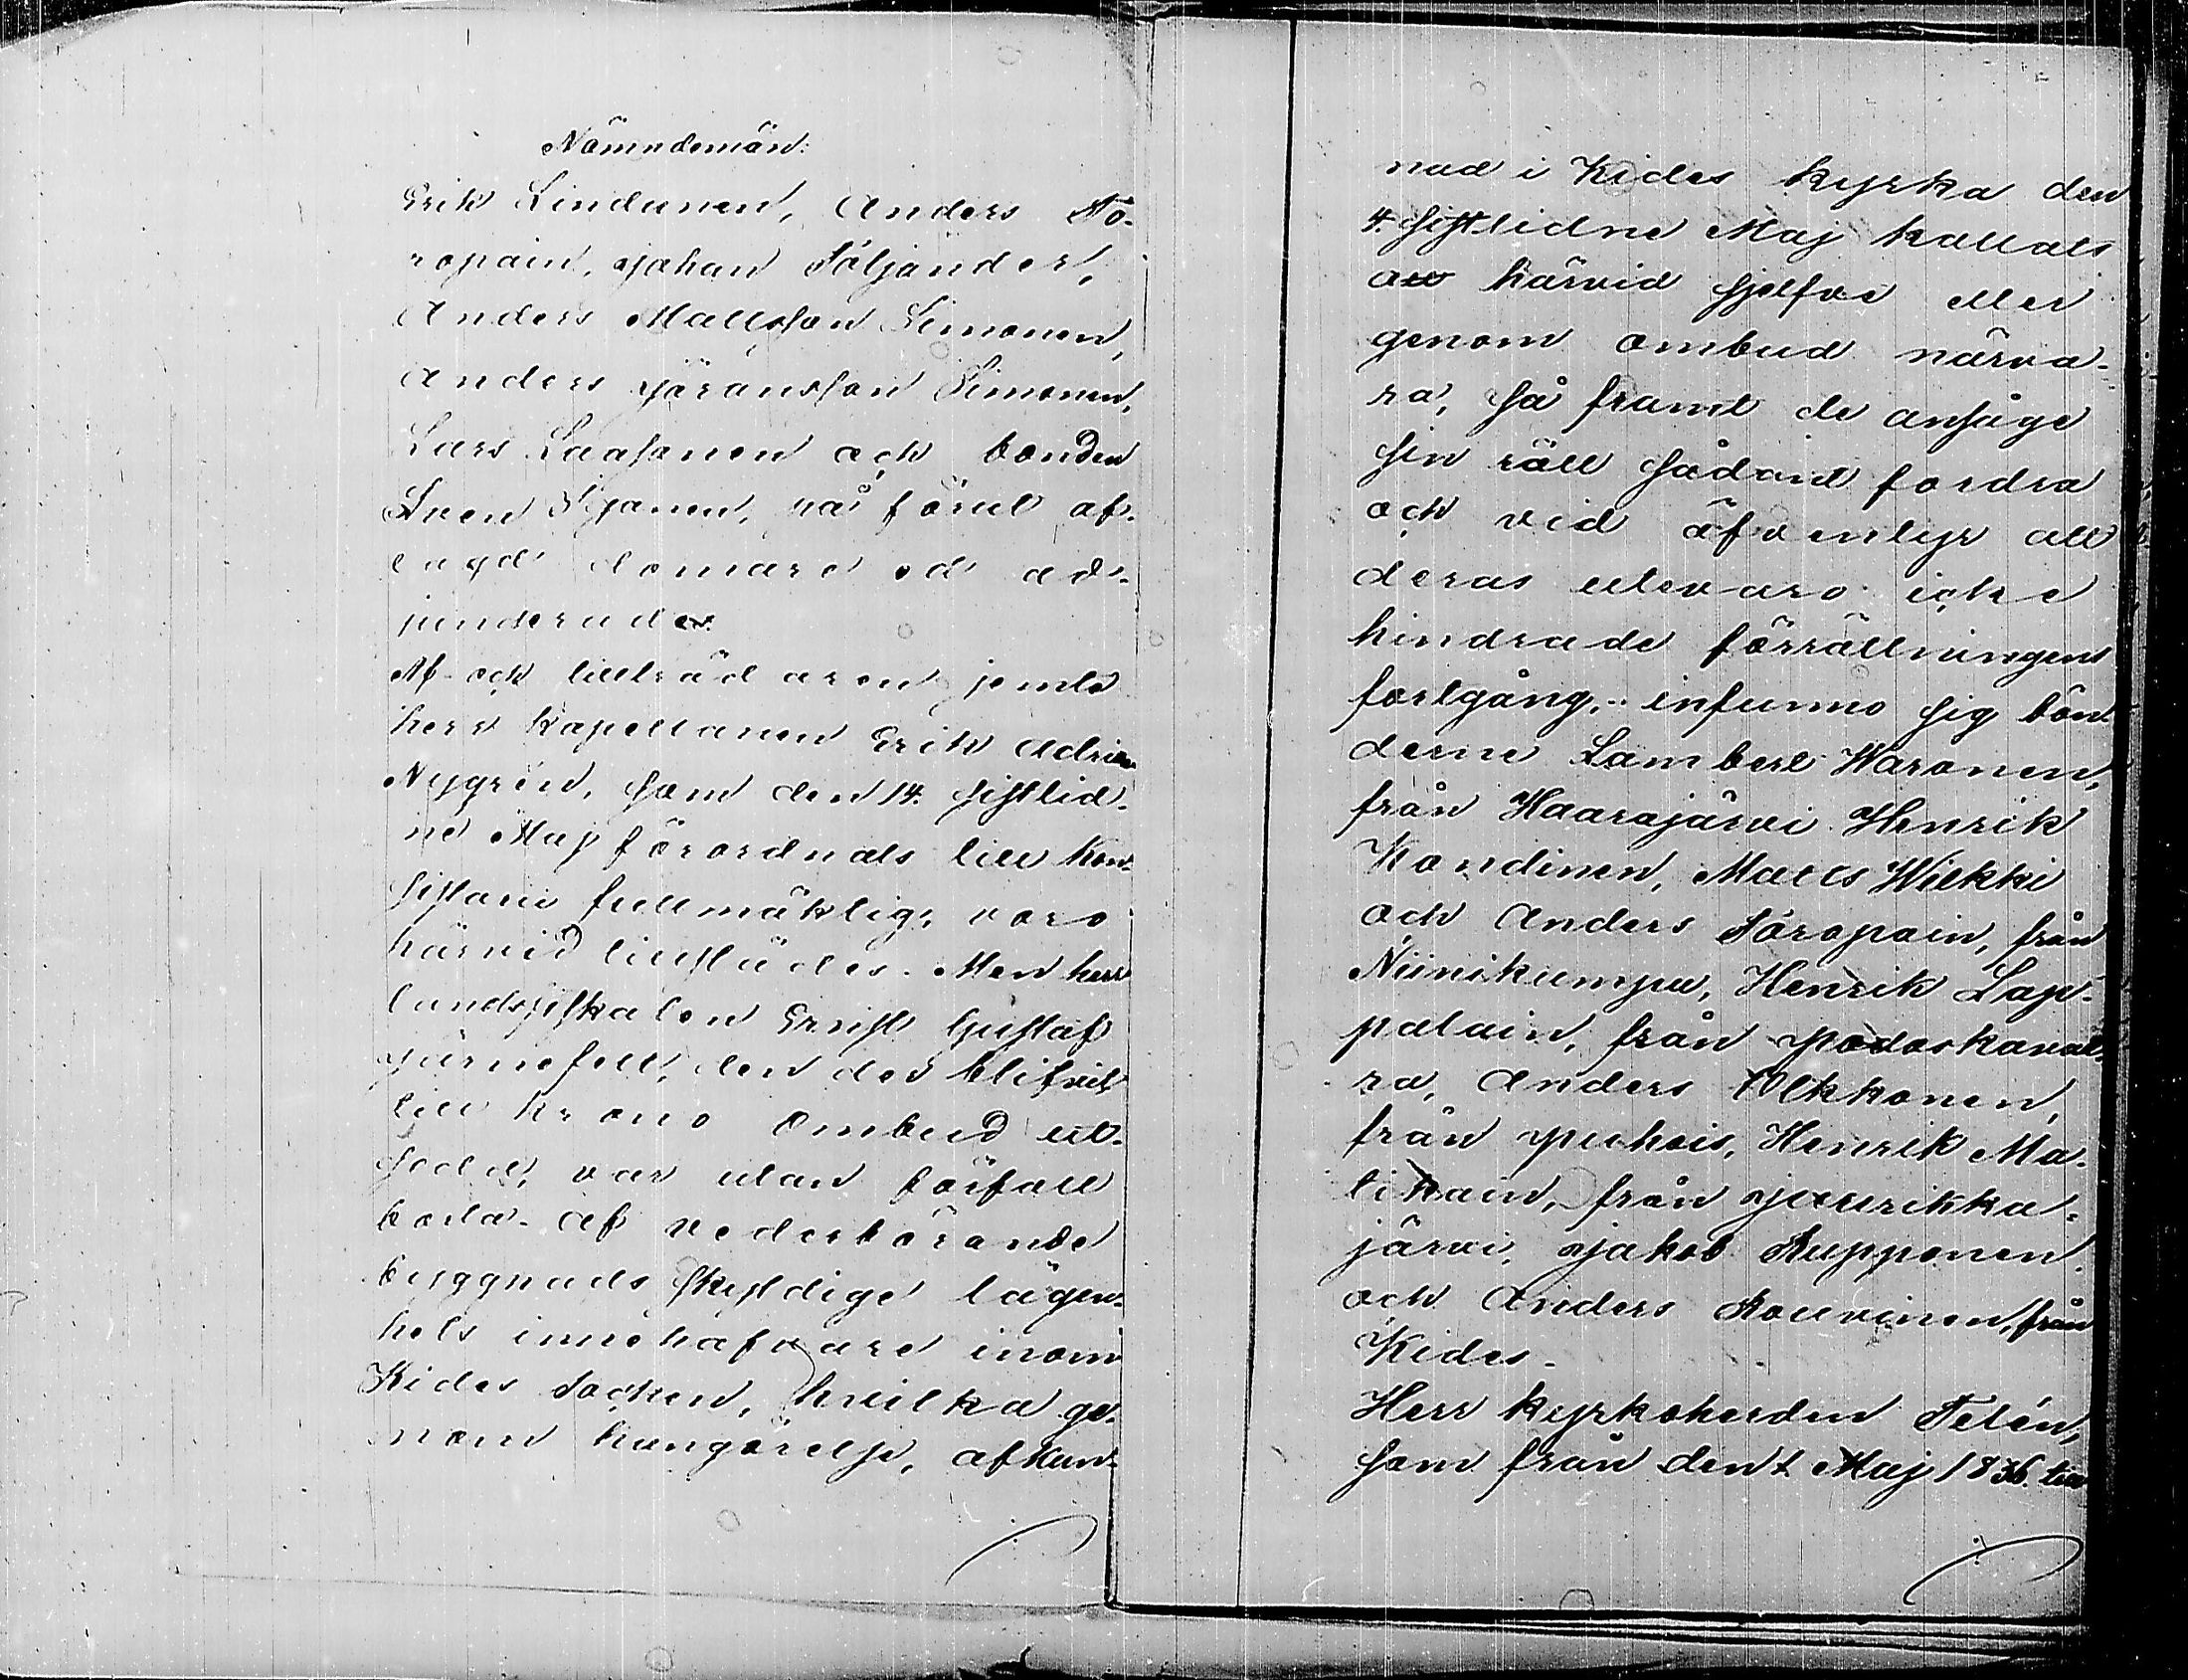 Nämndemän:
Erik Lindunen, Anders To-
ropain, Johan Följander,
Anders Mattsson Simonen,
Anders Göransson Simonen,
Lars Laasonen och bonden
Sven Pganen, på förut af-
lagd domare ed ad-
jungerade.
Af- och tillträdaren jemte
herr kapellanen Erik Adrian
Nygrén, som den 14. sistlid-
ne Maj förordnats till kon-
sistorii fullmäktig, voro
härvid tillstädes. Men herr
landsfiskalen Ernst Gustaf
Järnefelt, den der blifvit
till krono ombud ut-
sedd, var utan förfall
borta. Af vederbörande
byggnads skyldige lägen-
hets innehafvare inom
Kides socken, hvilka ge-
nom kungörelse, afkun-
nad i Kides kyrka den
4. sistlidne Maj kallats
att härvid sjelfve eller
genom ombud närva-
ra, så framt de ansåge
sin rätt sådant fordra
och vid äfventyr att
deras utevaro icke
hindrade förrättningens
fortgång, infunno sig bön-
derne Lambert Waronen,
från Haarajärvi Henrik
Kondinen, Matts Wiekki
och Anders Toropain, från
Niinikumpu, Henrik Lap-
palain, från Podoskaval-
ra, Anders Olkkonen,
från Puhois, Henrik Ma-
tikain, från Juurikka-
järvi, Jakob Rupponen
och Anders Rouvinen, från
Kides.
Herr kyrkoherden Telén,
som från den 1 Maj 1836. till